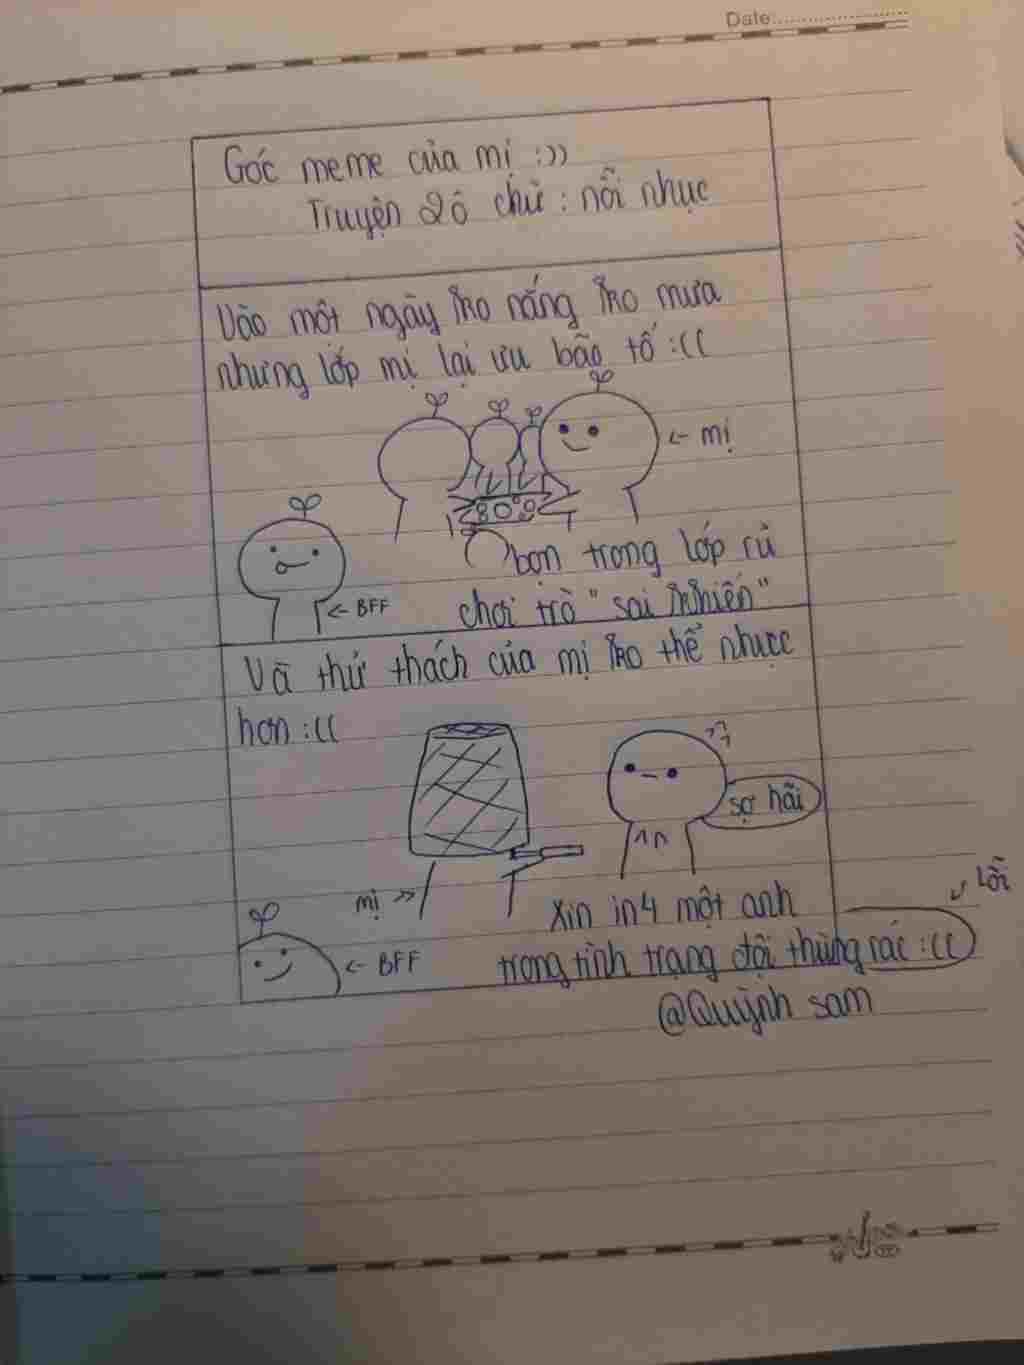 Date:
Góc meme của mị :))
Truyện 2 ô chữ : nỗi nhục
Vào một ngày ko nắng ko mưa
nhưng lớp mị lại ưu bão tố :((
← mị
bọn trong lớp rủ
← BFF
chơi trò "sai khiến"
Và thử thách của mị ko thể nhục
hơn :((
sợ hãi
mị »
Lỗi
xin in4 một anh
← BFF
trong tình trạng đội thùng rác :((
@Quỳnh sam